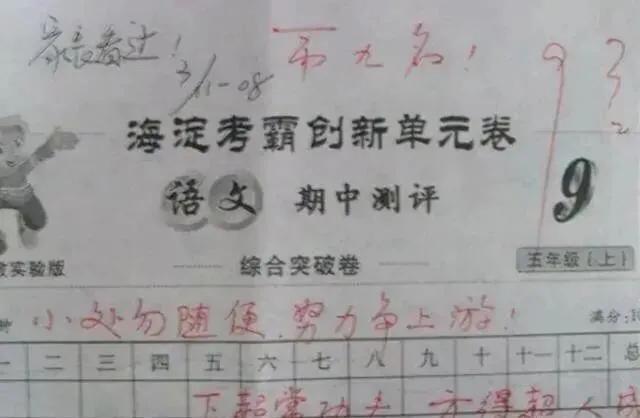 家长看过！ 第九名！ 93
3/11-08
海淀考霸创新单元卷
语文 期中测评 9
实验版 综合突破卷 五年级(上)
小处勿随便，努力争上游！ 满分:
一 二 三 四 五 六 七 八 九 十 十一 十二 总
功夫 方得超人